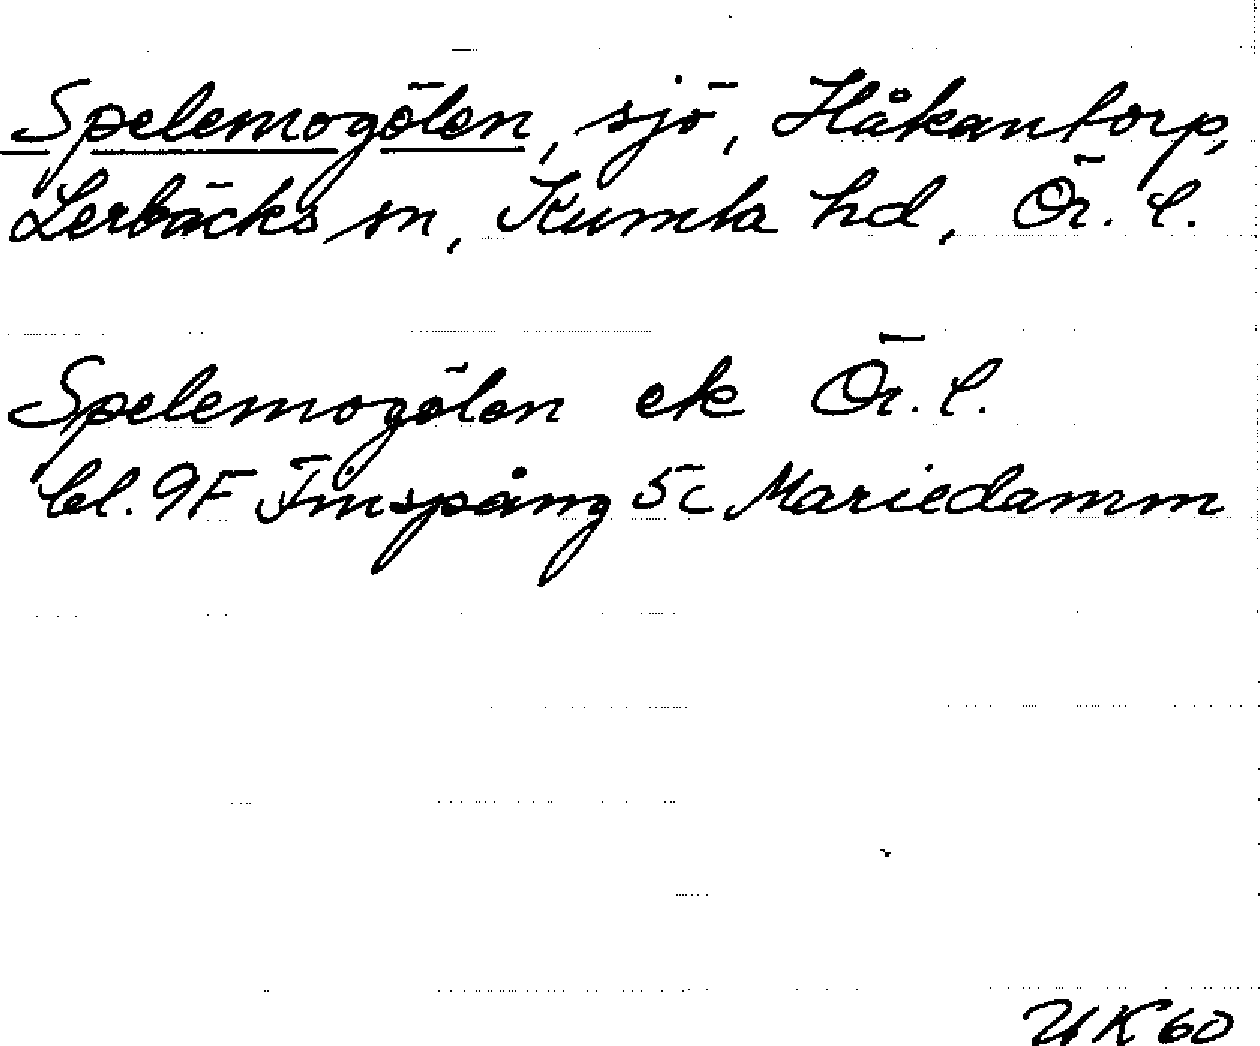 Spelemogölen, sjö, Håkantorp,
Lerbäcks sn, Kumla hd, Ör. l.
Spelemogölen ek Ör. l.
bl. 9F Finspång 5c Mariedamm
UK60